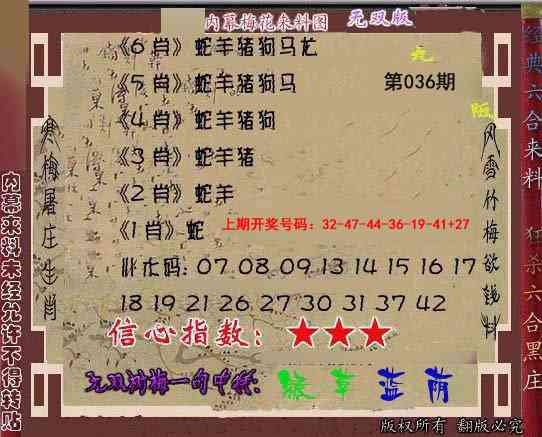 内幕梅花来料图 无双版
《6肖》蛇羊猪狗马龙
《5肖》蛇羊猪狗马 第036期
《4肖》蛇羊猪狗
《3肖》蛇羊猪
《2肖》蛇羊
《1肖》蛇
上期开奖号码：32-47-44-36-19-41+27
07 08 09 13 14 15 16 17
18 19 21 26 27 30 31 37 42
信心指数：★★★
蓝 荫
版权所有 翻版必究
寒梅屠庄生肖
风雪竹梅欲钱料
内幕来料未经允许不得转贴
经典六合来料 狂杀六合黑庄